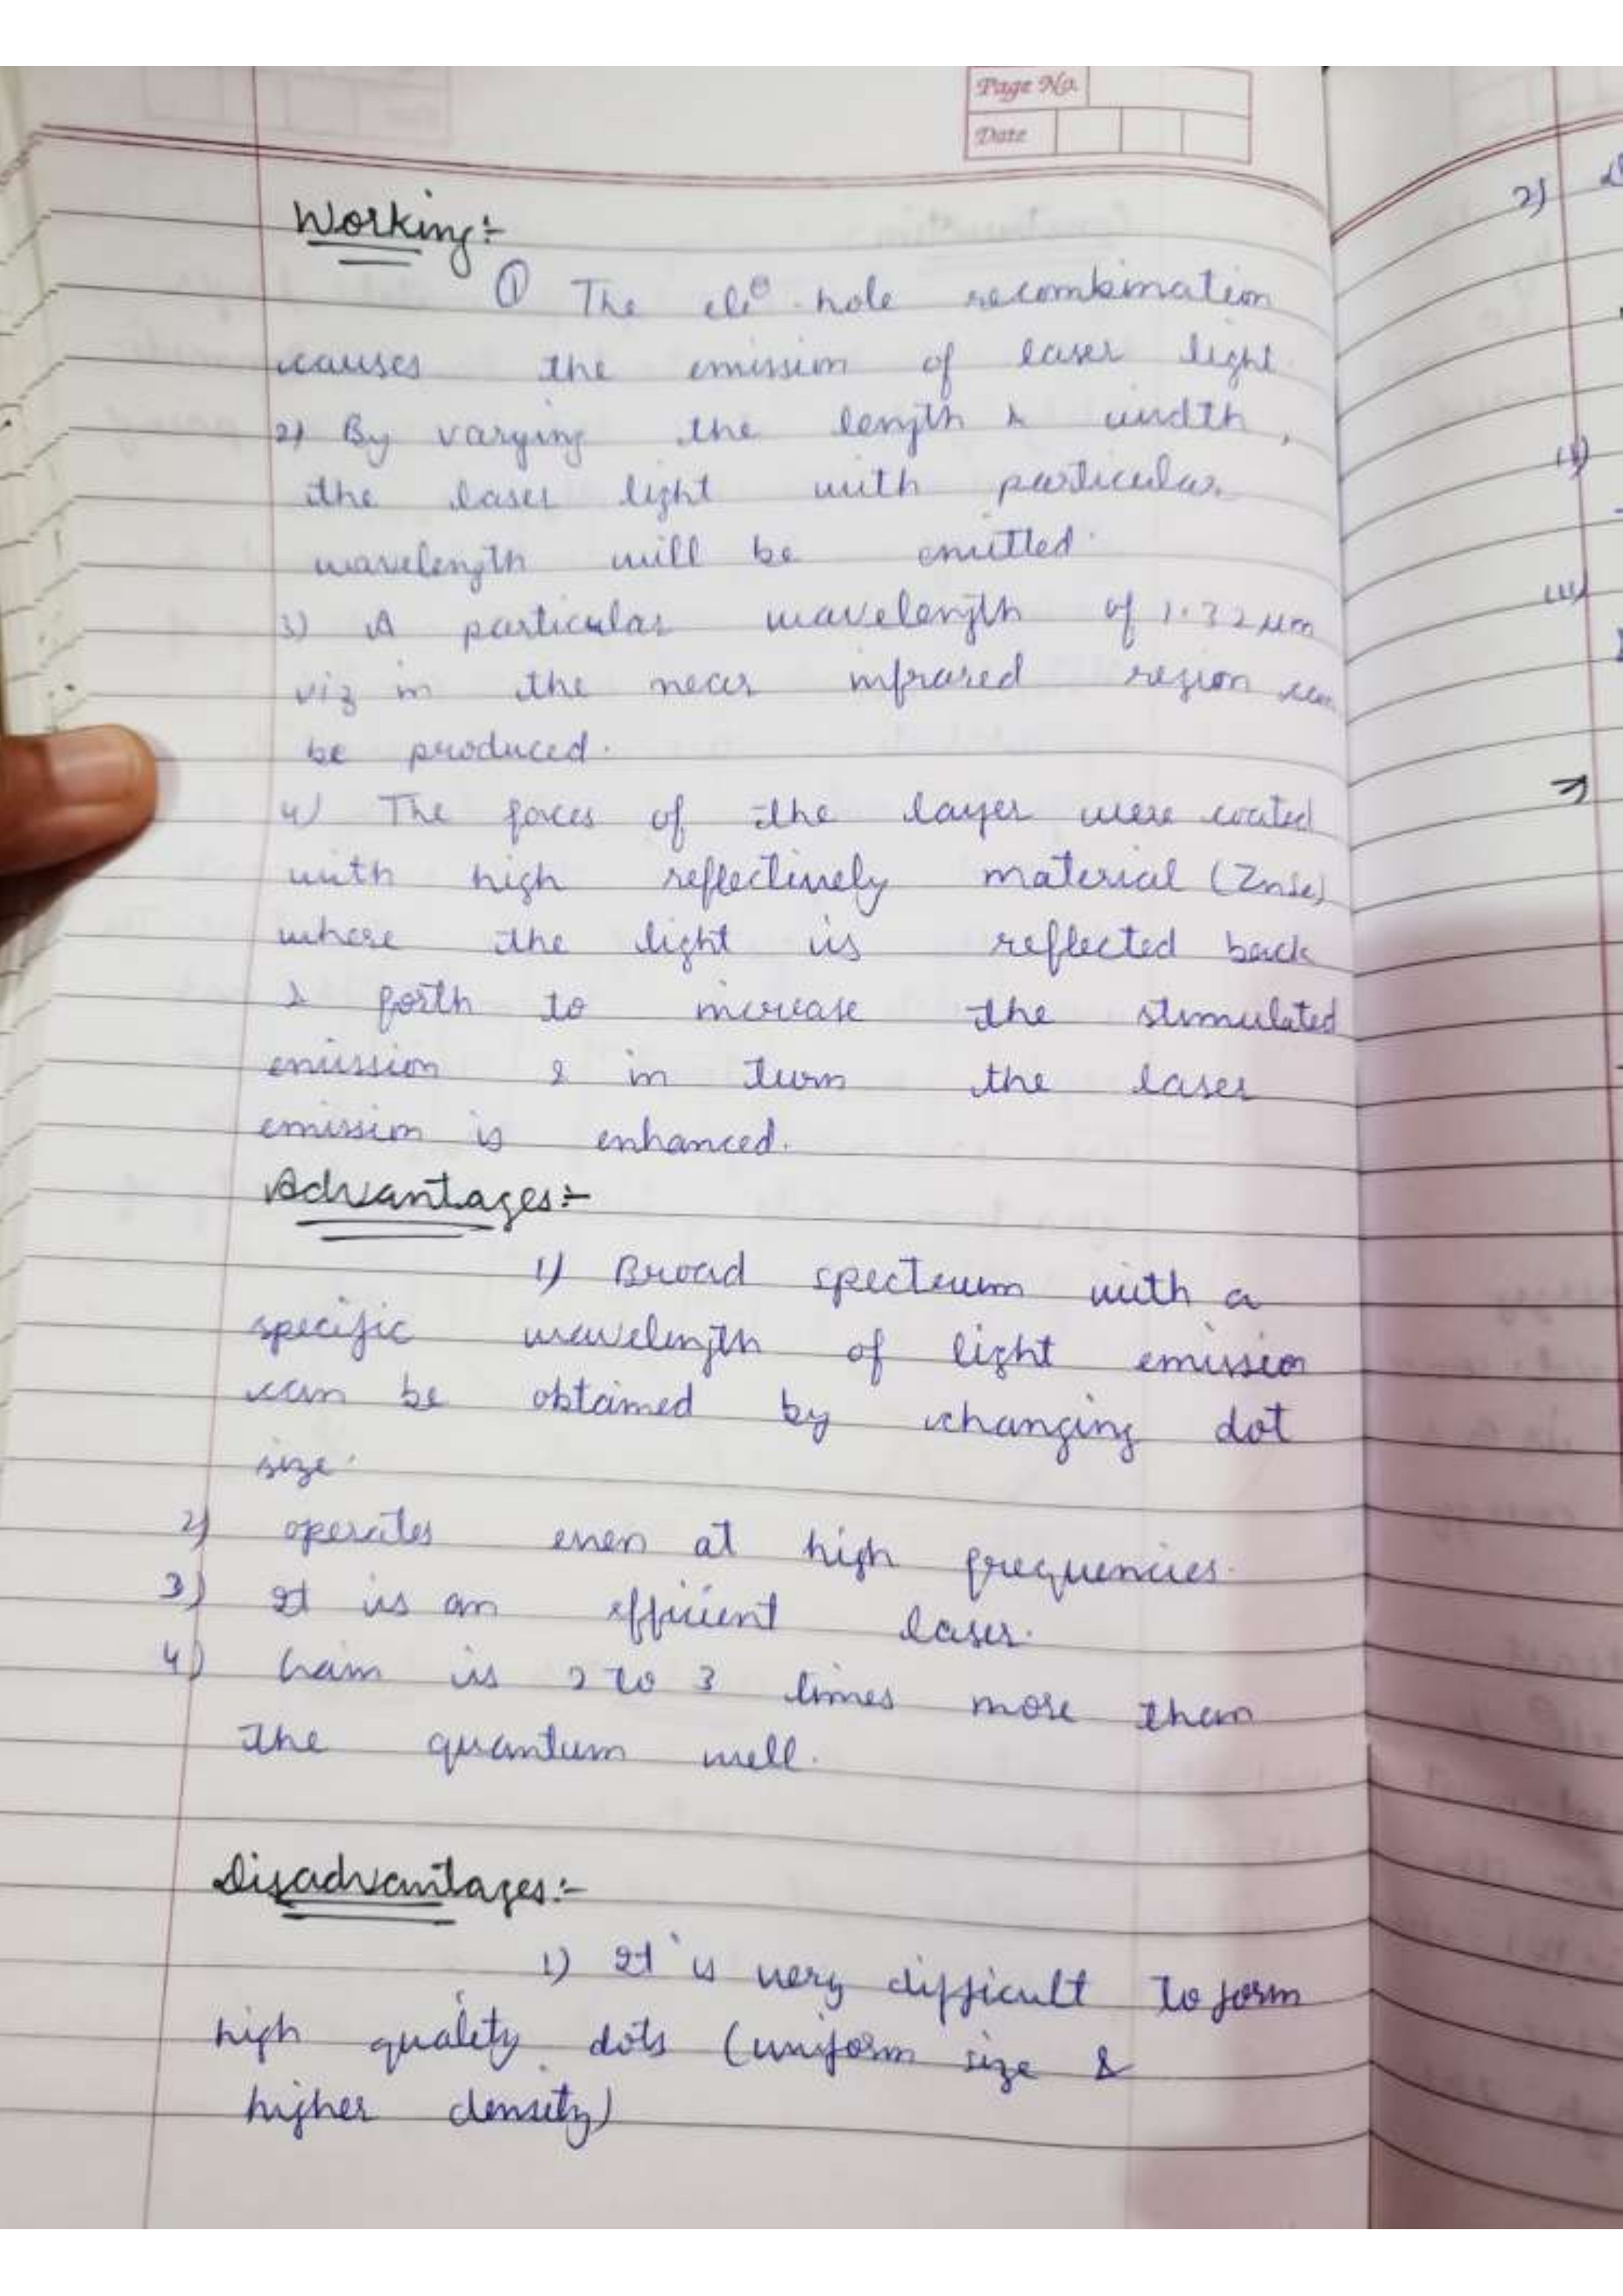 Page No.
Date
Working:-
① The ele⊖ hole recombination
causes the emission of laser light
2) By varying the length & width,
the laser light with particular
wavelength will be emitted.
3) A particular wavelength of 1.32 μm
viz in the near infrared region can
be produced.
4) The faces of the layer were coated
with high reflectively material (ZnSe)
where the light is reflected back
& forth to increase the stimulated
emission & in turn the laser
emission is enhanced.
Advantages:-
1) Broad spectrum with a
specific wavelength of light emission
can be obtained by changing dot
size.
2) operates even at high frequencies.
3) It is an efficient laser.
4) Gain is 2 to 3 times more than
the quantum well.
Disadvantages:-
1) It is very difficult to form
high quality dots (uniform size &
higher density)
2)